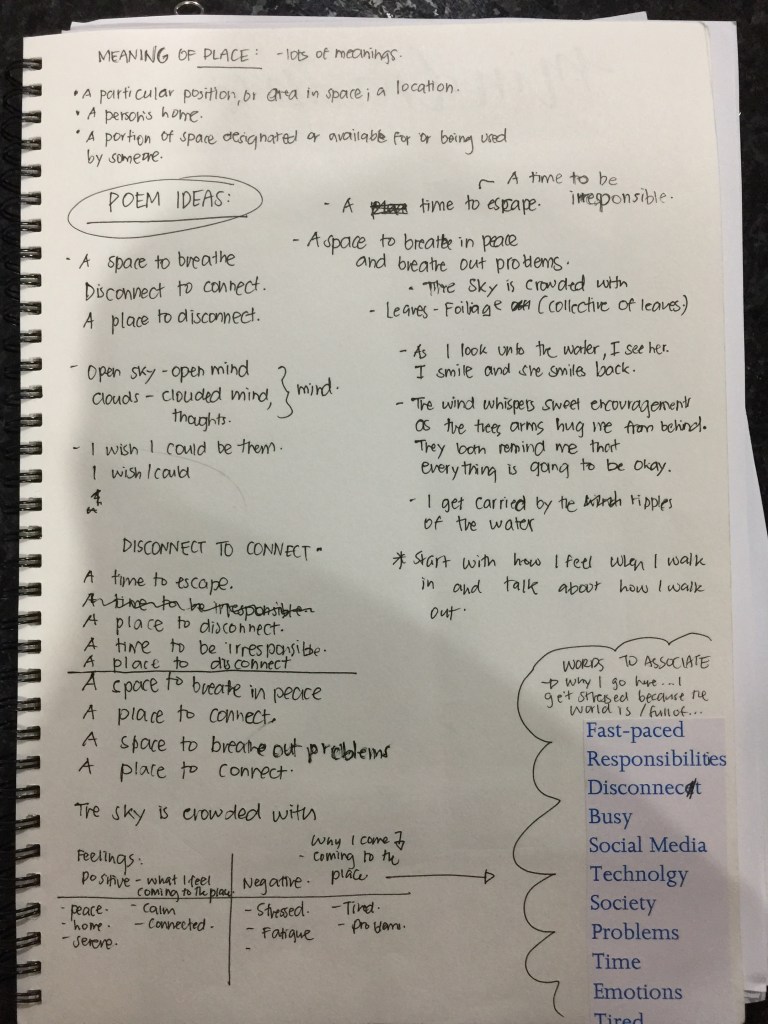 MEANING OF PLACE: - lots of meanings.
• A particular position, or area in space; a location.
• A persons home.
• A portion of space designated or available for or being used
by someone.
POEM IDEAS:
- A space to breathe
Disconnect to connect.
A place to disconnect.
- Open sky - open mind
clouds - clouded mind, } mind.
thoughts.
- I wish I could be them.
I wish I could
- A time to escape.
A time to be
irresponsible.
- A space to breathe in peace
and breathe out problems.
• The sky is crowded with
- Leaves - Foiliage (collective of leaves)
- As I look unto the water, I see her.
I smile and she smiles back.
- The wind whispers sweet encouragements
as the trees arms hug me from behind.
They both remind me that
everything is going to be okay.
- I get carried by the ripples
of the water
* Start with how I feel when I walk
in and talk about how I walk
out.
DISCONNECT TO CONNECT -
A time to escape.
A time to be irresponsible
A place to disconnect.
A time to be irresponsible.
A place to disconnect
A space to breathe in peace
A place to connect.
A space to breathe out problems
A place to connect.
The sky is crowded with
Feelings:
Positive - what I feel
coming to the place
- peace. - Calm
- home. - Connected.
- serene.
Why I come
- coming to the
Negative. place
- Stressed. - Tired.
- Fatigue - Problems.
-
WORDS TO ASSOCIATE
→ why I go here... I
get stressed because the
world is / full of...
Fast-paced
Responsibilities
Disconnect
Busy
Social Media
Technolgy
Society
Problems
Time
Emotions
Tired